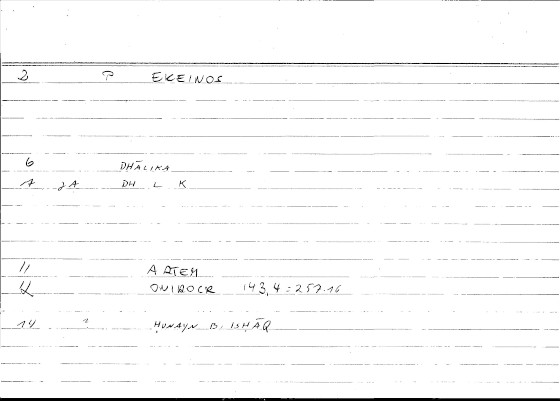 2 P EKEINOS
6 DHĀLIKA
1 JA DH L K
11 ARTEM
12 ONIROCR 143,4 = 259.16
14 1 ḤUNAYN B. ISḤĀQ